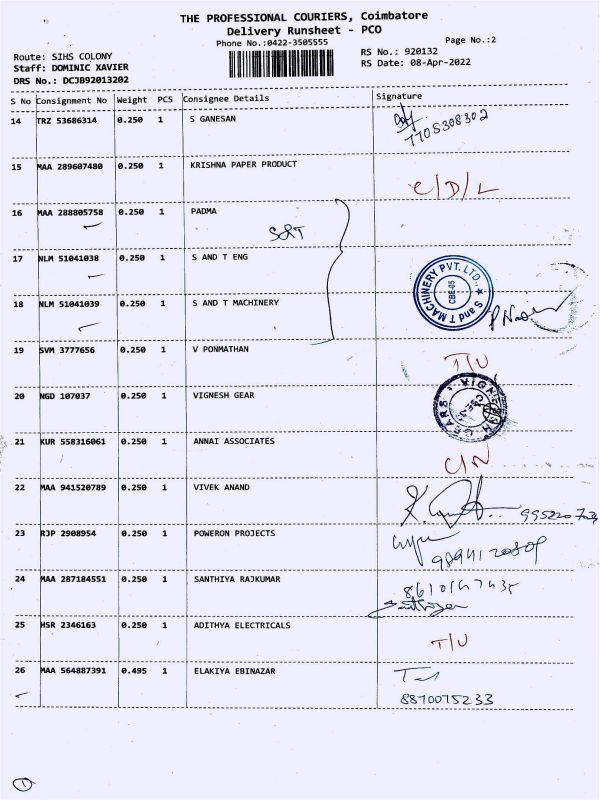 THE PROFESSIONAL COURIERS, Coimbatore
Delivery Runsheet - PCO
Phone No.:0422-3505555
Page No.:2
Route: SIHS COLONY
RS No.: 920132
Staff: DOMINIC XAVIER
RS Date: 08-Apr-2022
DRS No.: DCJB92013202
S No Consignment No Weight PCS Consignee Details Signature
14 TRZ 53686314 0.250 1 S GANESAN
7708308302
15 MAA 289607480 0.250 1 KRISHNA PAPER PRODUCT
C/D/L
16 MAA 288805758 0.250 1 PADMA
S&T
17 NLM 51041038 0.250 1 S AND T ENG
S and T MACHINERY PVT. LTD. CBE-05
18 NLM 51041039 0.250 1 S AND T MACHINERY
19 SVM 3777656 0.250 1 V PONMATHAN
T/U
20 NGD 107037 0.250 1 VIGNESH GEAR
VIGNESH GEARS
21 KUR 558316061 0.250 1 ANNAI ASSOCIATES
C/N
22 MAA 941520789 0.250 1 VIVEK ANAND
23 RJP 2908954 0.250 1 POWERON PROJECTS
24 MAA 287184551 0.250 1 SANTHIYA RAJKUMAR
25 HSR 2346163 0.250 1 ADITHYA ELECTRICALS
T/U
26 MAA 564887391 0.495 1 ELAKIYA EBINAZAR
8870075233
1